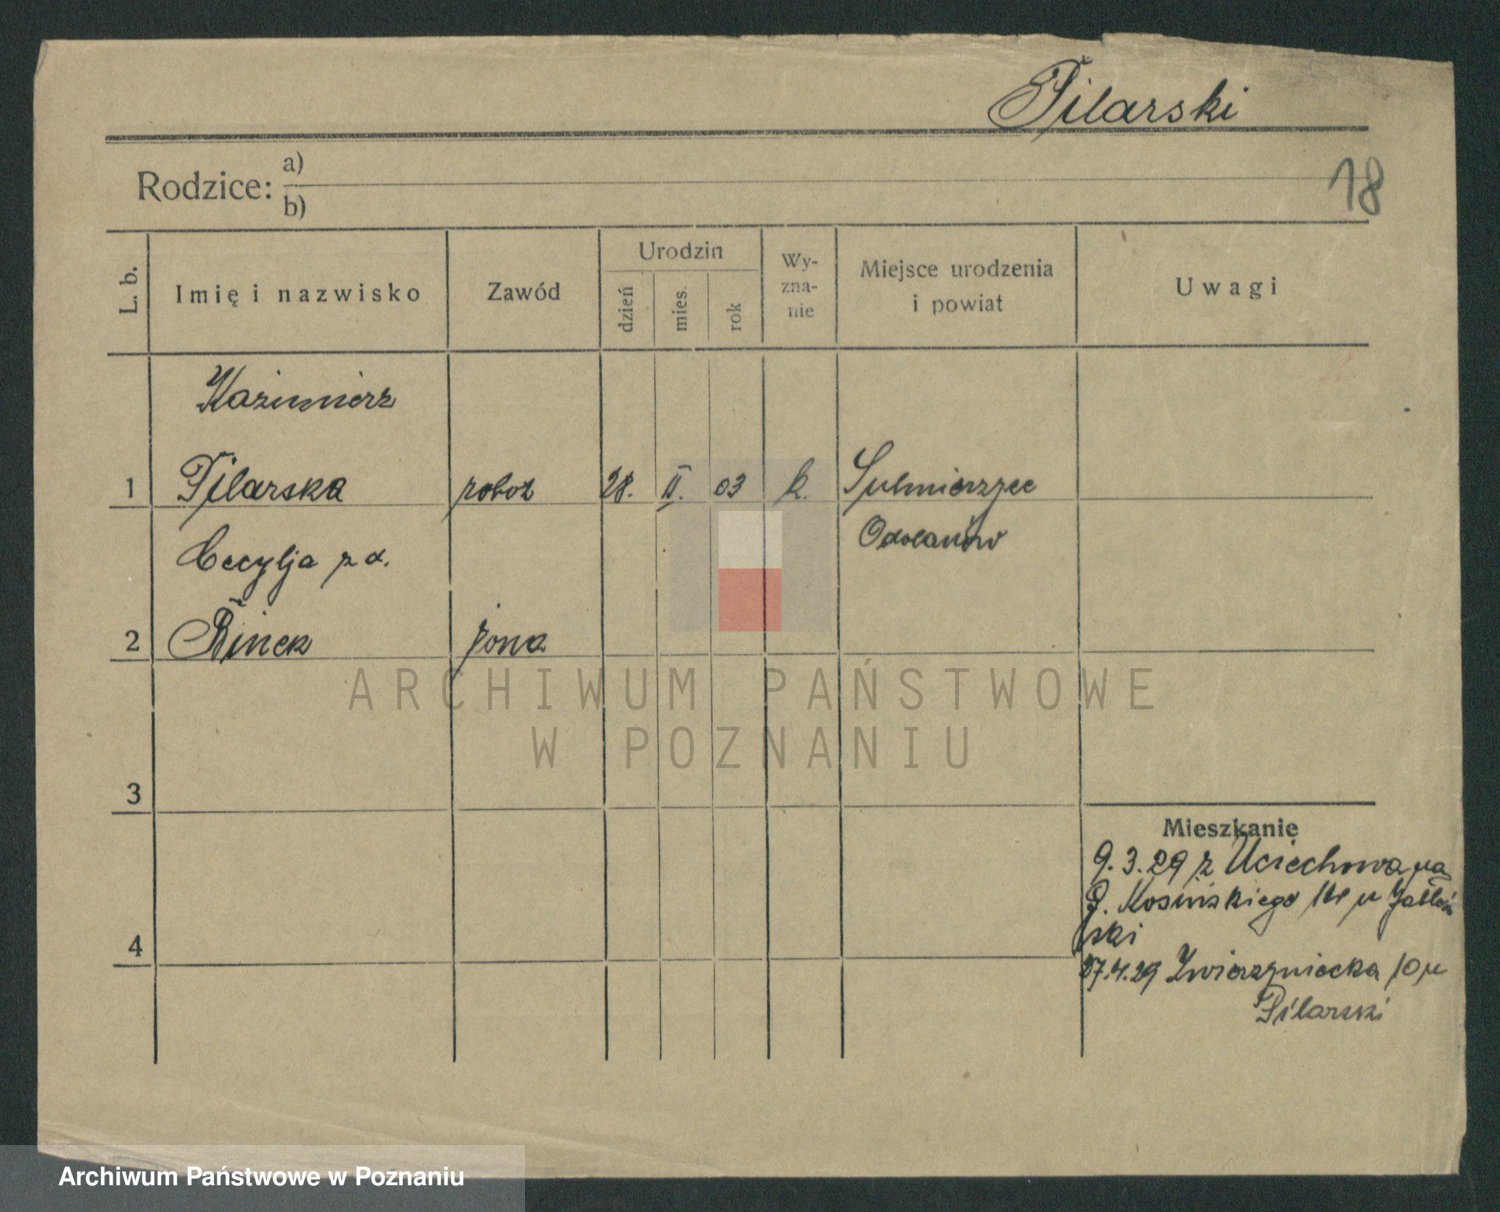 Pilarski
Rodzice: a)
b)
18
L. b. Imię i nazwisko Zawód Urodzin dzień mies. rok Wyznanie Miejsce urodzenia i powiat Uwagi
Kazimierz
1 Pilarska robot 28. II. 03 k. Sulmierzyce
Cecylja z d. Odolanów
2 Binek żona
ARCHIWUM PAŃSTWOWE
W POZNANIU
3
Mieszkanie
9.3.29 z Uciechowa na
J. Kosińskiego 14 u Jabłoń
ski
4
27.4.29 Zwierzyniecka 10 u
Pilarski
Archiwum Państwowe w Poznaniu